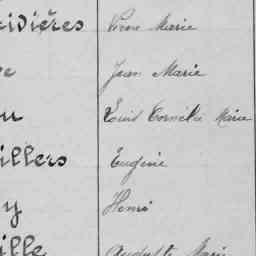 ividières Marie
Jean Marie
u Louis Cornélie Marie
illers Eugénie
y Henri
ille Auguste Marie